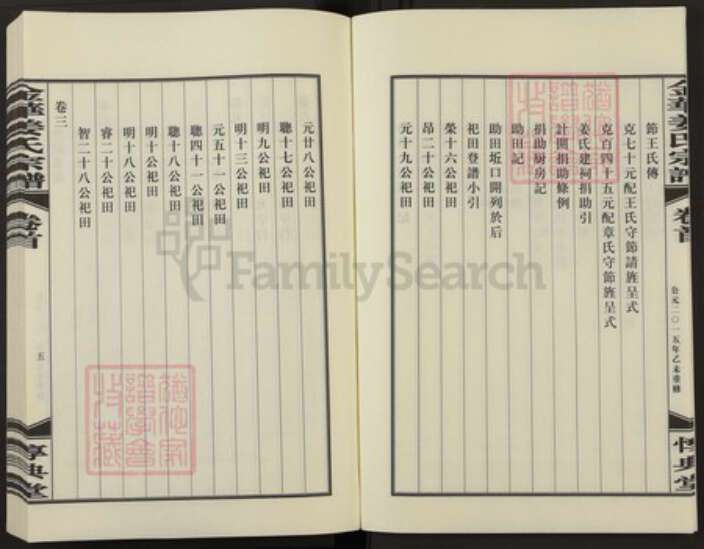 節王氏傳
克七十元配王氏守節請旌呈式
克百四十五元配章氏守節旌呈式
姜氏建祠捐助引
計開捐助條例
捐助廚房記
助田記
助田坵口開列於后
祀田登譜小引
榮十六公祀田
昂二十公祀田
元十九公祀田
金華姜氏宗譜
卷首
公元二〇一五年乙未重修
惇典堂
元廿八公祀田
聰十七公祀田
明九公祀田
明十三公祀田
元五十一公祀田
聰四十一公祀田
聰十八公祀田
明十公祀田
明十八公祀田
睿二十公祀田
智二十八公祀田
卷三
金華姜氏宗譜
卷首
五
惇典堂
FamilySearch